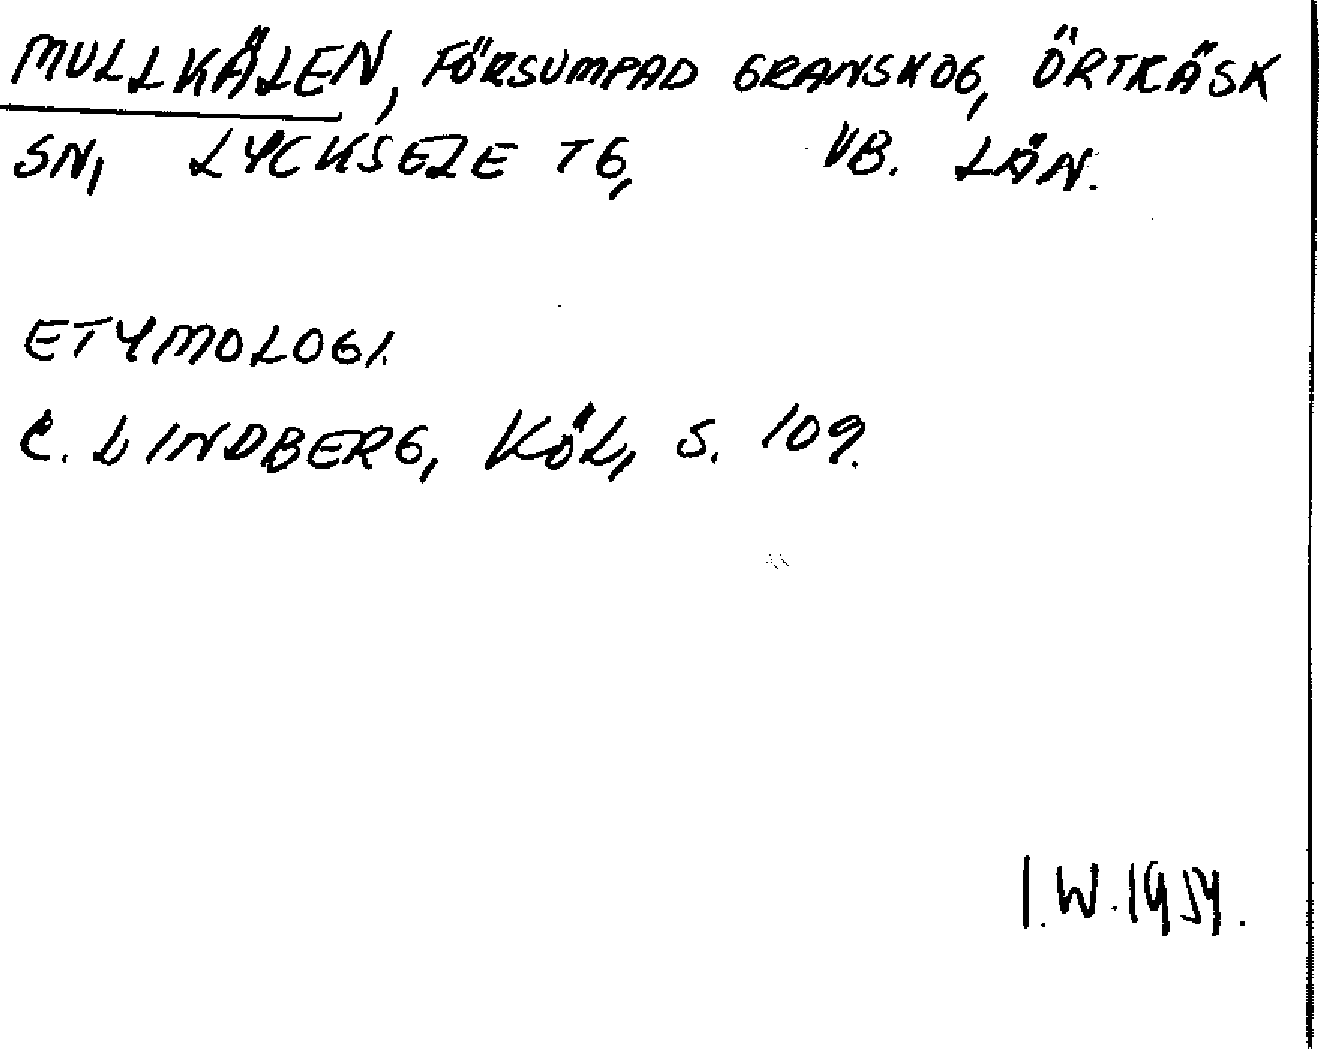 MULLKÄLEN, FÖRSUMPAD GRANSKOG, ÖRTRÄSK
SN, LYCKSELE TG, VB. LÄN.
ETYMOLOGI.
C. LINDBERG, KÖL, S. 109.
I.W. 1954.